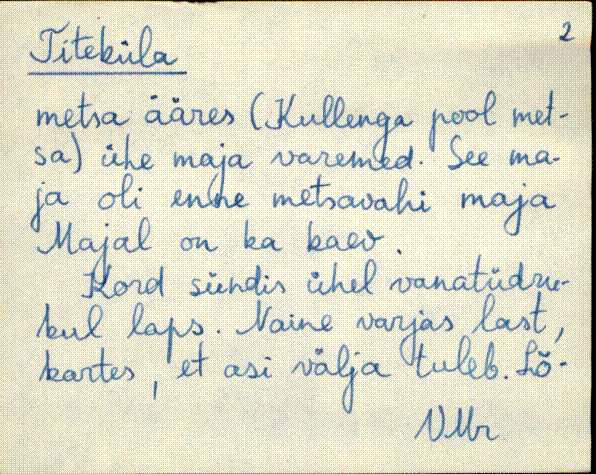 2
Titeküla
metsa ääres (Kullenga pool met-
sa) ühe maja varemed. See ma-
ja oli enne metsavahi maja
Majal on ka kaev.
Kord sündis ühel vanatüdru-
kul laps. Naine varjas last,
kartes, et asi välja tuleb. Lõ-
VMr